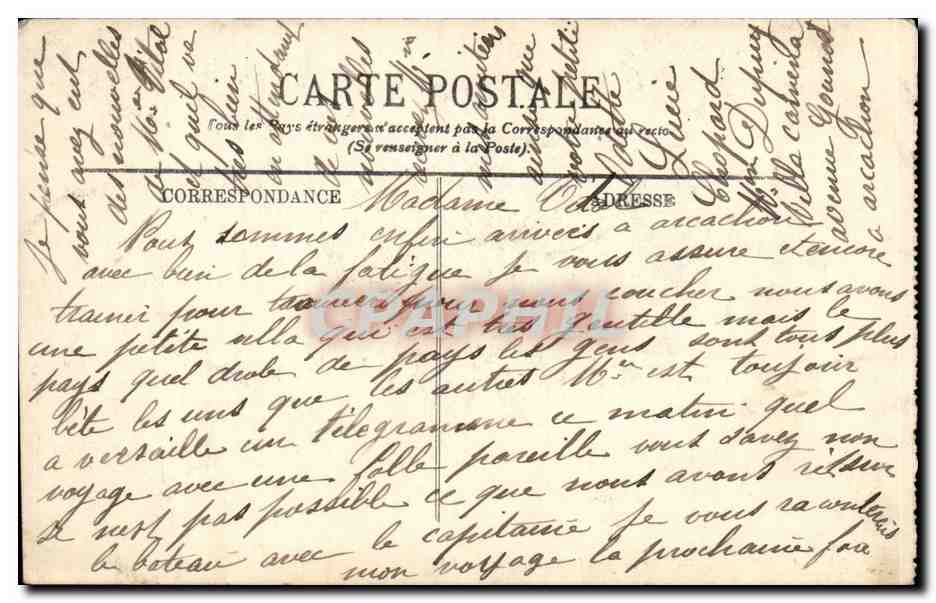 CARTE POSTALE
Tous les Pays étrangers n'acceptent pas la Correspondance au recto
(Se renseigner à la Poste).
CORRESPONDANCE
ADRESSE
Madame
Nous sommes enfin arrivés a arcachon
avec bien de la fatigue je vous assure et encore
trainer pour trouver pour nous coucher nous avons
une petite villa qui est tres gentille mais le
pays quel drole de pays les gens sont tous plus
bête les uns que les autres Mr est toujour
a versaille un télégramme ce matin quel
voyage avec une folle pareille vous savez non
se nest pas possible ce que nous avons rit sur
le bateau avec le capitaine je vous raconterais
mon voyage la prochaine fois
je pense que
vous avez eut
des nouvelles
de
et quil va
bien
en attendant
de vos
nouvelles
recevez
mes amitiés
ainsi que
votre petit
Lucie
Chopard
Villa carmen
avenue Gounod
a arcachon
CPAPHIL